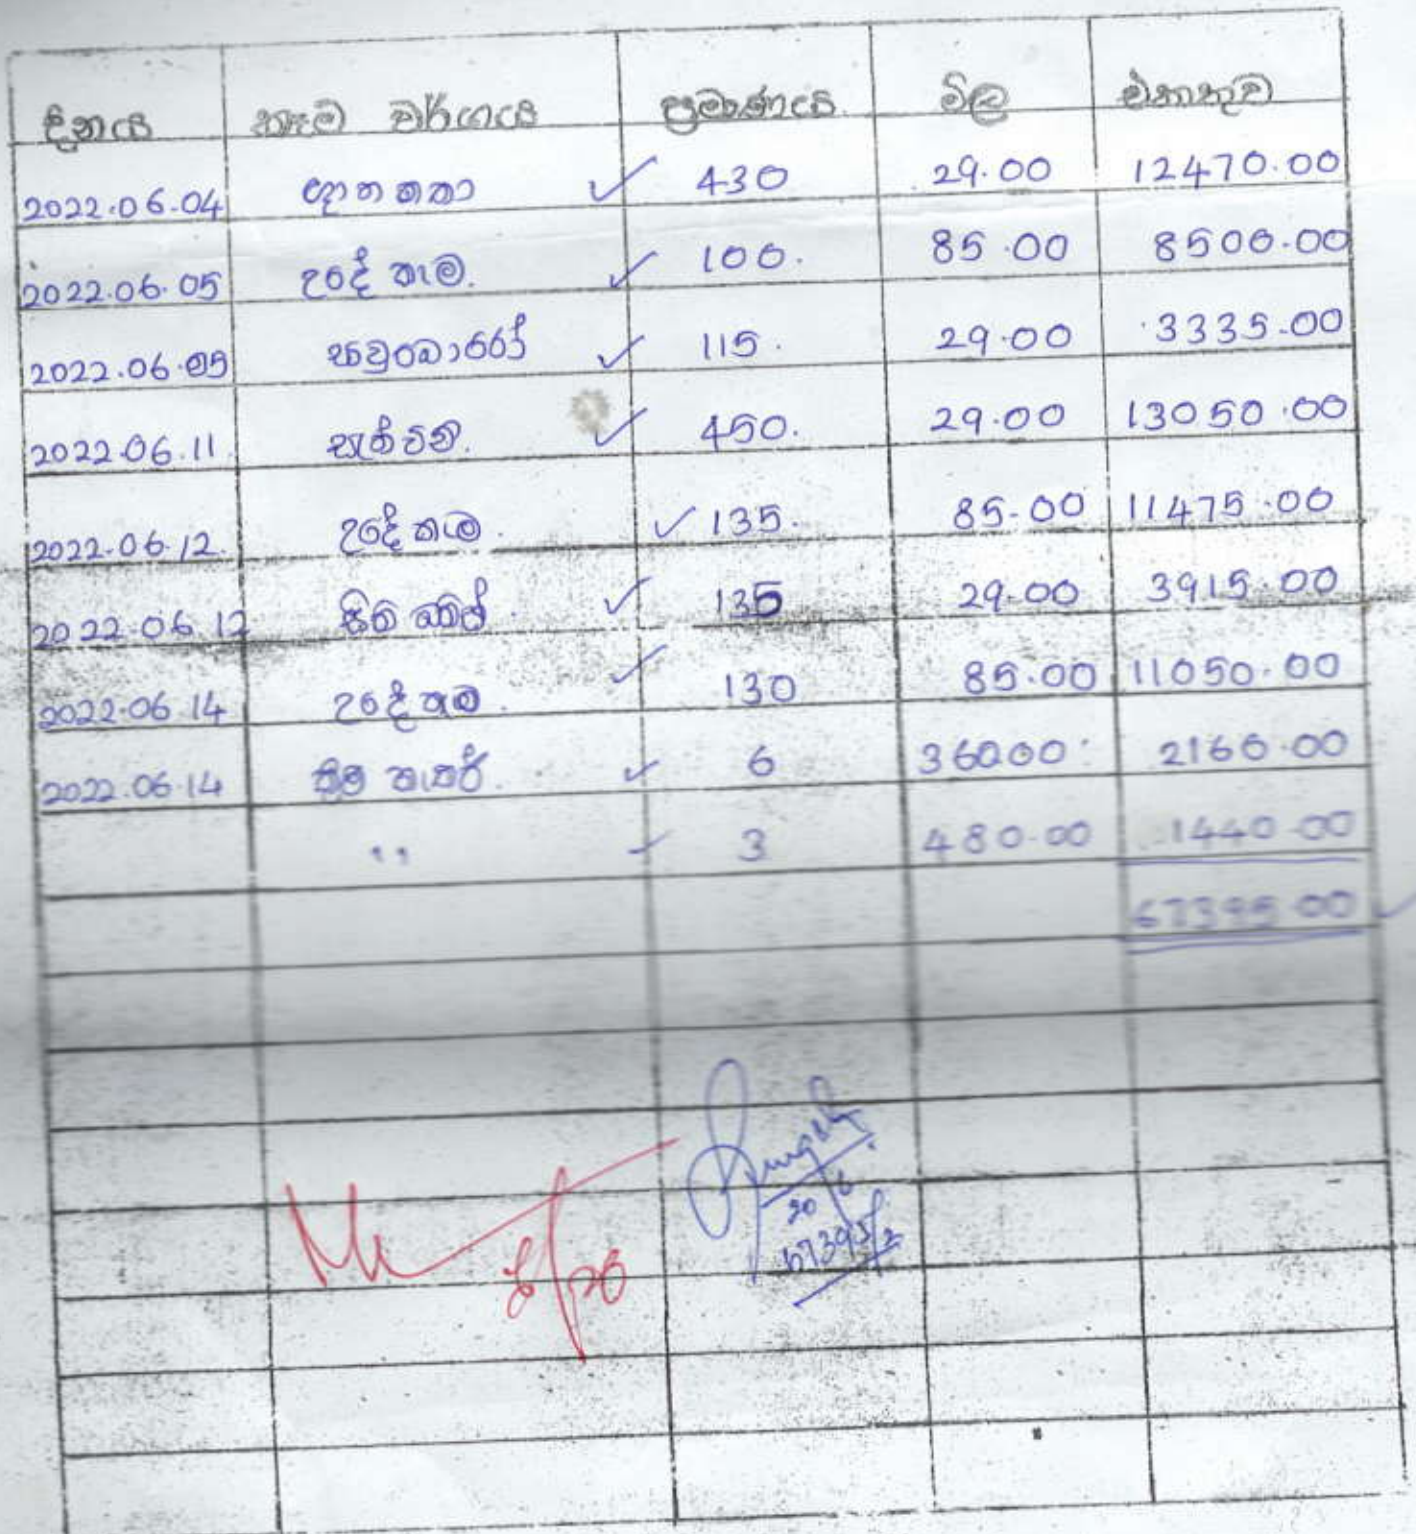 දිනය කෑම වර්ගය ප්‍රමාණය. මිල එකතුව
2022.06.04 430 29.00 12470.00
2022.06.05 උදේ කෑම. 100. 85.00 8500.00
2022.06.05 115. 29.00 3335.00
2022.06.11. 450. 29.00 13050.00
2022.06.12. උදේ කෑම. 135. 85.00 11475.00
2022.06.12 135 29.00 3915.00
2022.06.14 උදේ කෑම. 130 85.00 11050.00
2022.06.14 6 360.00 2160.00
" 3 480.00 1440.00
67395.00
20/6
67395/2